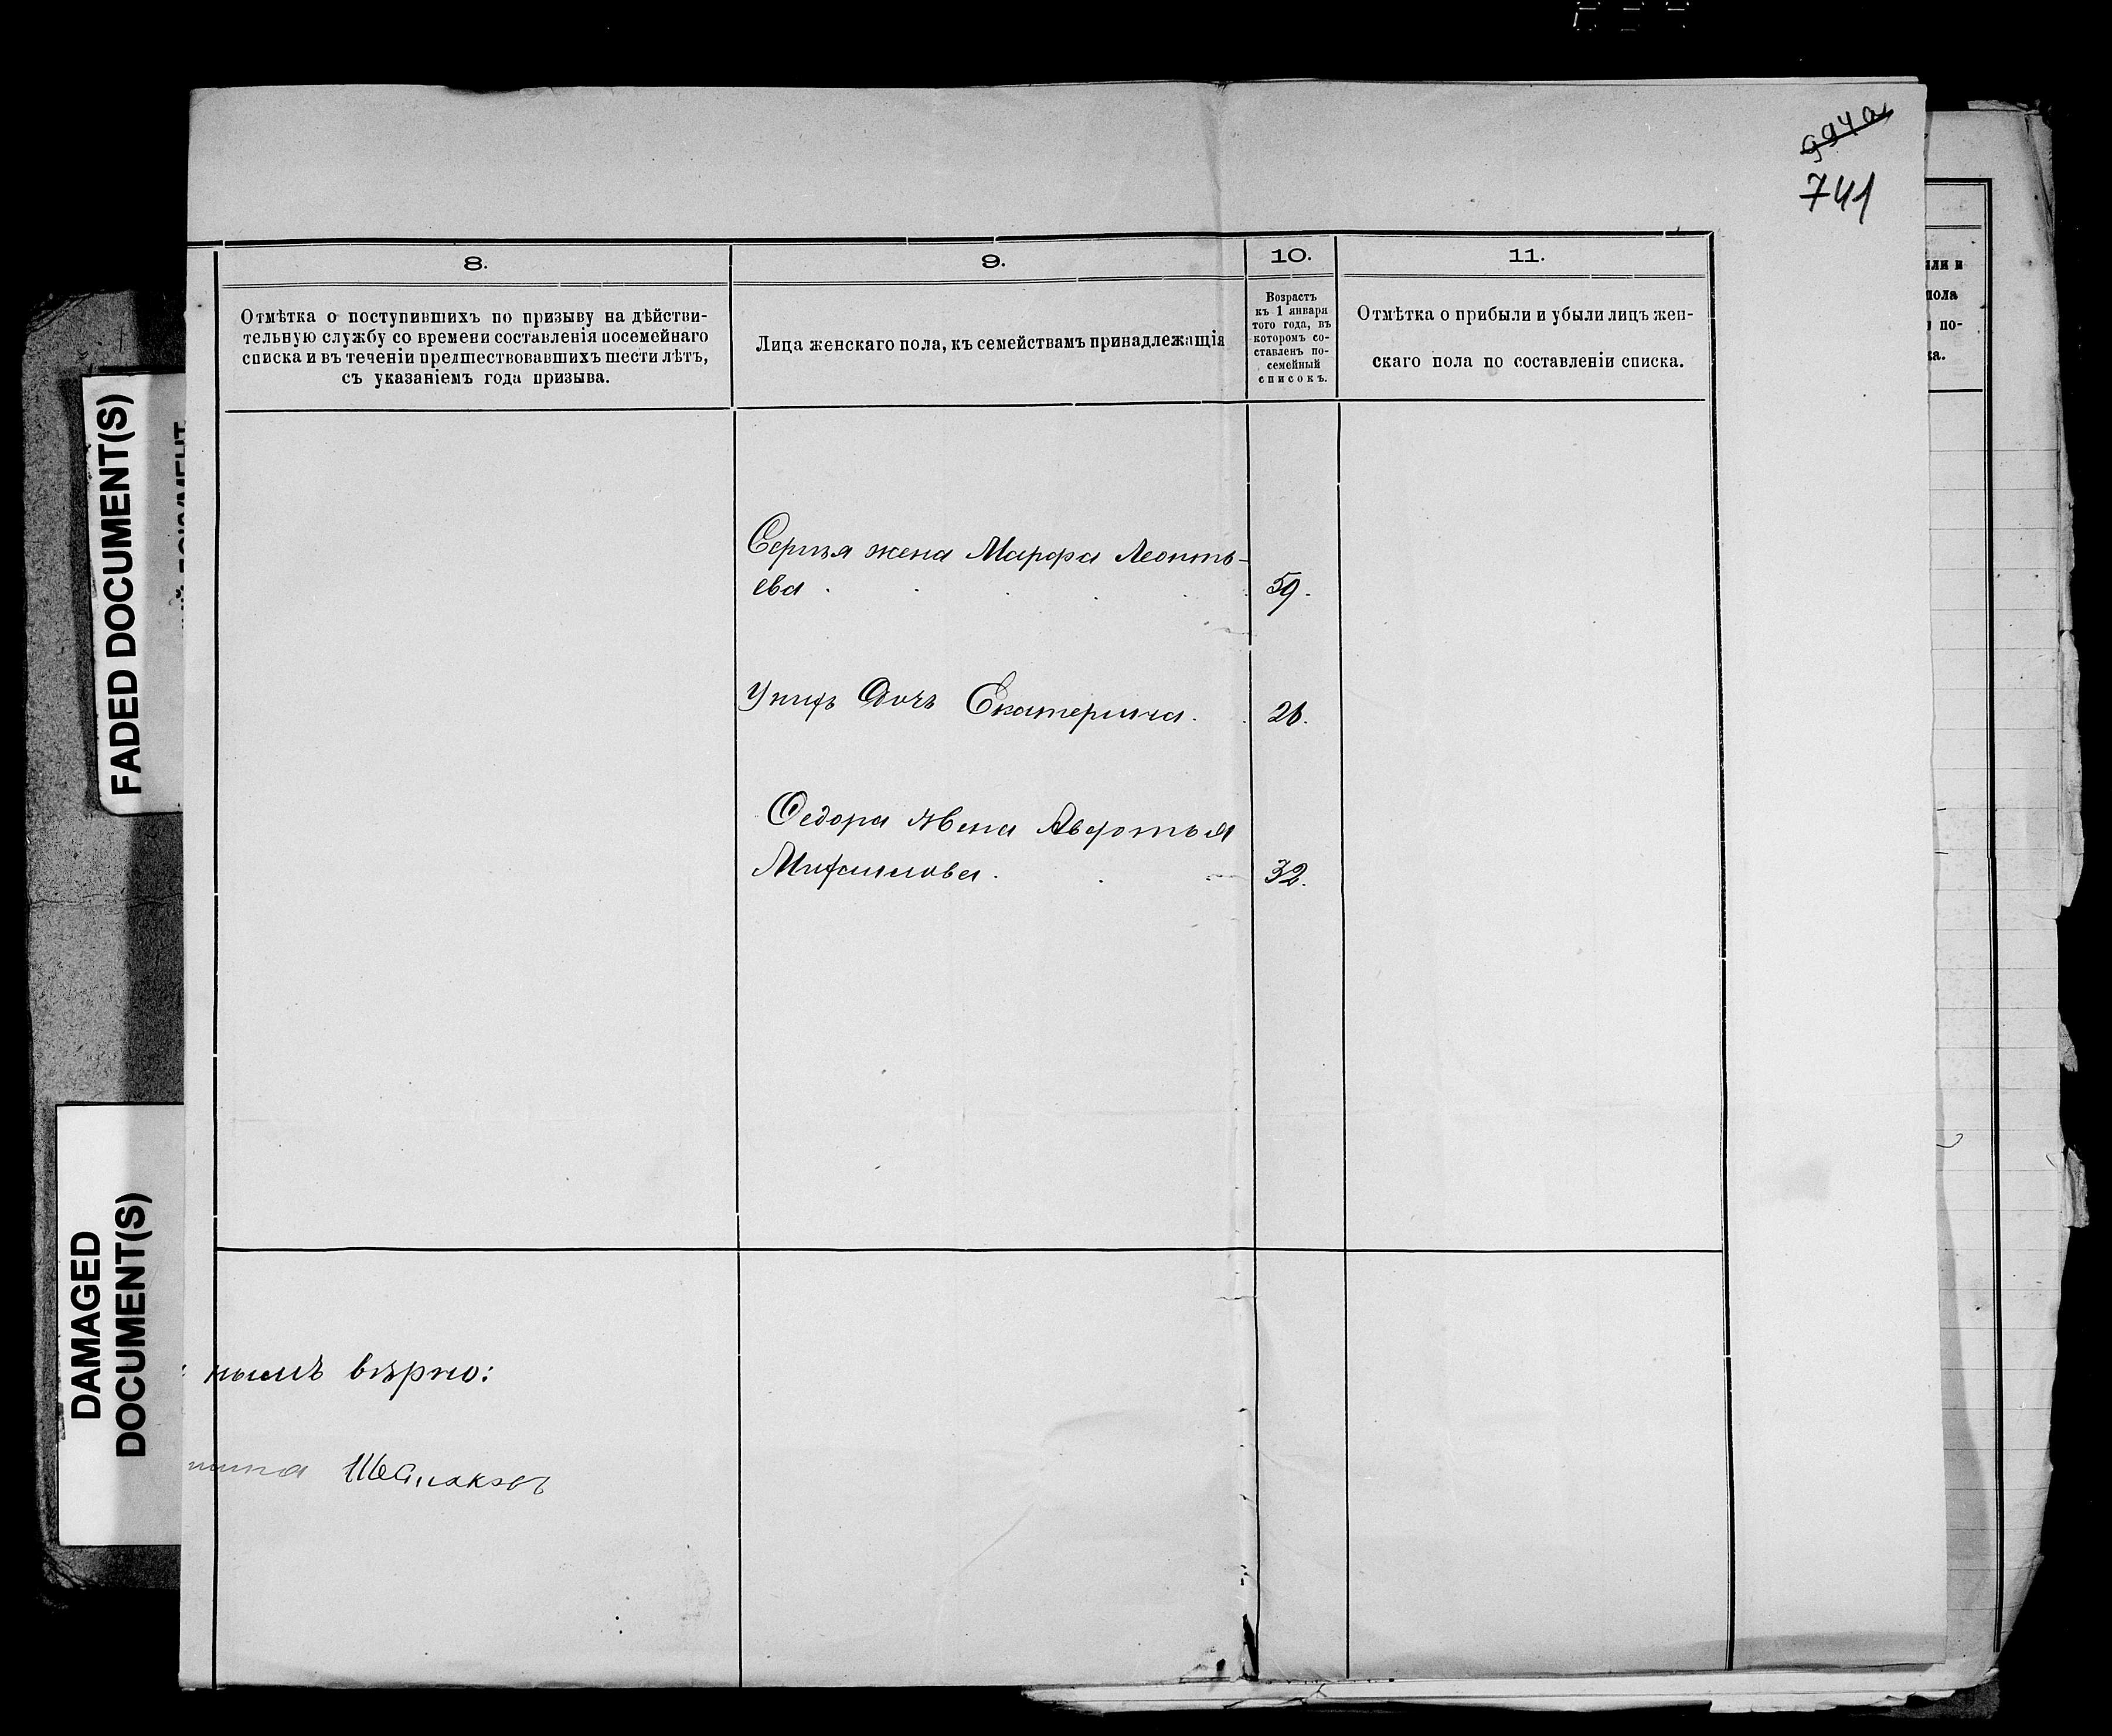 994а
741
8.
9.
10.
11.
Отмѣтка о поступившихъ по призыву на дѣйстви-
тельную службу со времени составленія посемейнаго
списка и въ теченіи предшествовавшихъ шести лѣтъ,
съ указаніемъ года призыва.
Лица женскаго пола, къ семействамъ принадлежащія
Возрастъ
къ 1 января
того года, въ
которомъ со-
ставленъ по-
семейный
списокъ.
Отмѣтка о прибыли и убыли лицъ жен-
скаго пола по составленіи списка.
или и
пола
по-
ка.
FADED DOCUMENT(S)
DAMAGED
DOCUMENT(S)
Сергѣя жена Марфа Леонть-
ева 59.
У нихъ дочь Екатерина. 26.
Федора жена Авдотья
Михайлова. 32.
нымъ вѣрно: